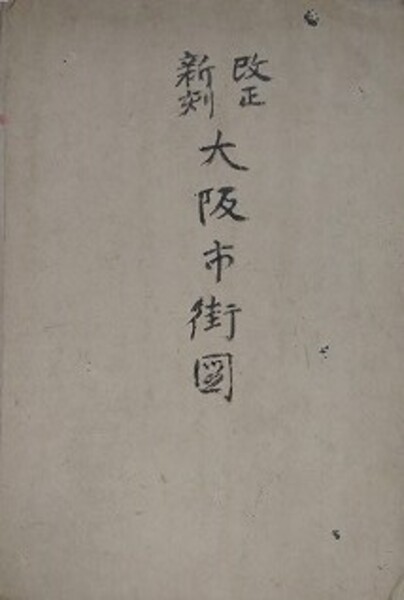 改正
新刻
大阪市街圖